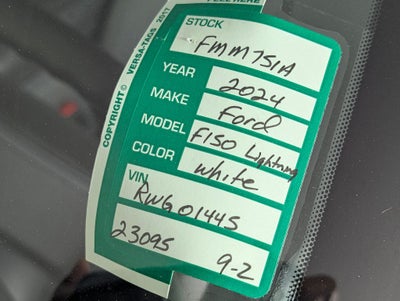 PEEL HERE
STOCK
FMM751A
YEAR 2024
MAKE Ford
MODEL F150 Lightning
COLOR White
VIN
RWG01445
23095 9-2
COPYRIGHT © VERSA-TAGS 2017